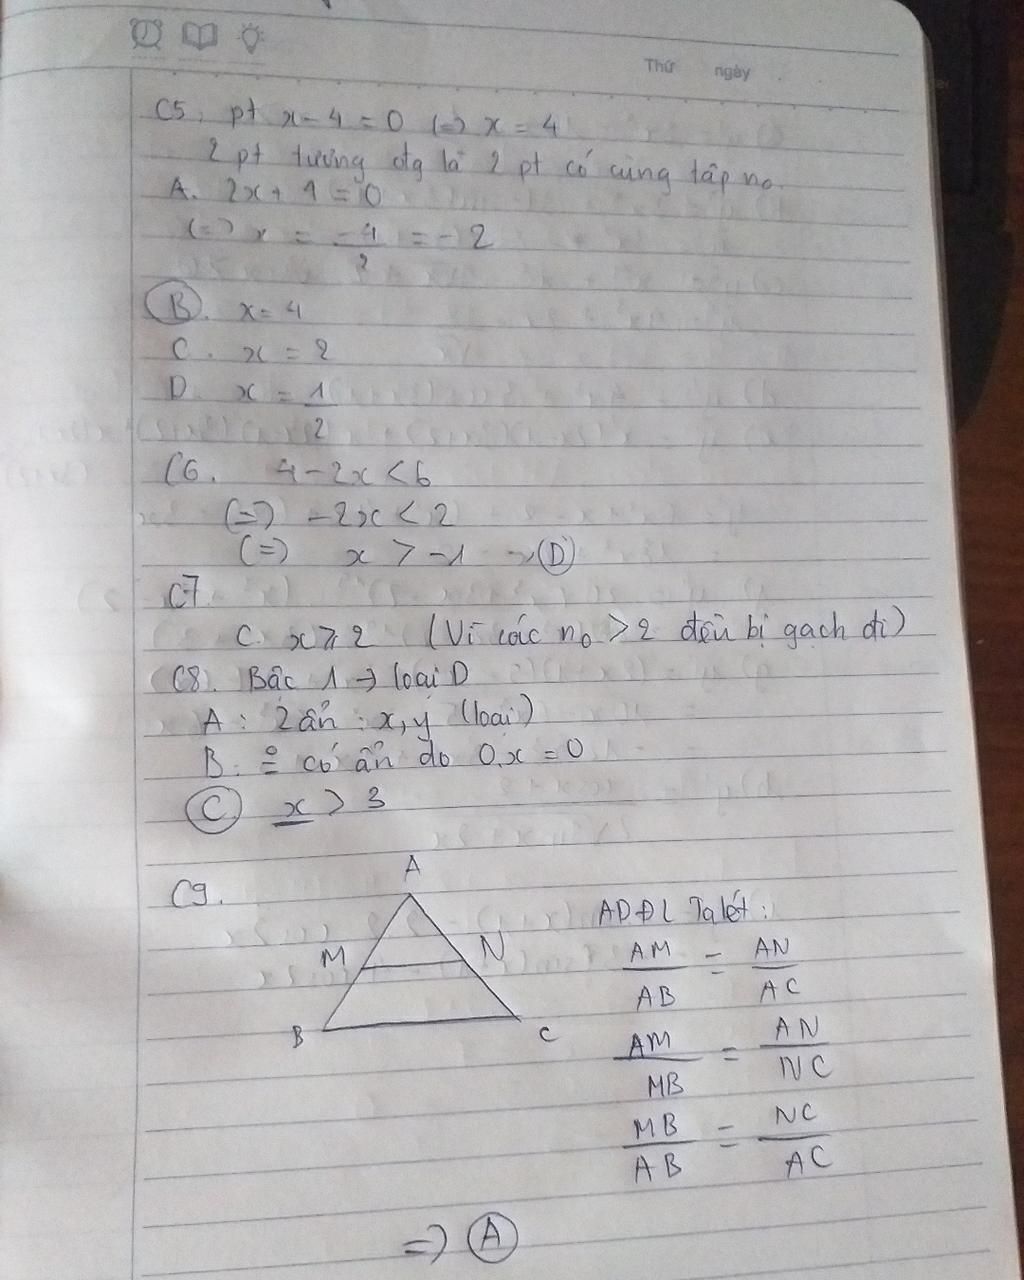 Thứ ngày
C5, pt x - 4 = 0 (=) x = 4
2 pt tương đg là 2 pt có cùng tập no
A. 2x + 1 = 0
(=) x = -4/2 = -2
B. x = 4
C. x = 2
D. x = 1/2
C6. 4 - 2x < 6
(=) -2x < 2
(=) x > -1 → D
C7
C. x ⩾ 2 (Vì các no > 2 đều bị gạch đi)
C8. Bậc 1 → loại D
A: 2 ẩn: x, y (loại)
B. có ẩn do 0.x = 0
C. x > 3
C9.
A
M N
B C
ADĐL Talét:
AM/AB = AN/AC
AM/MB = AN/NC
MB/AB = NC/AC
=) A